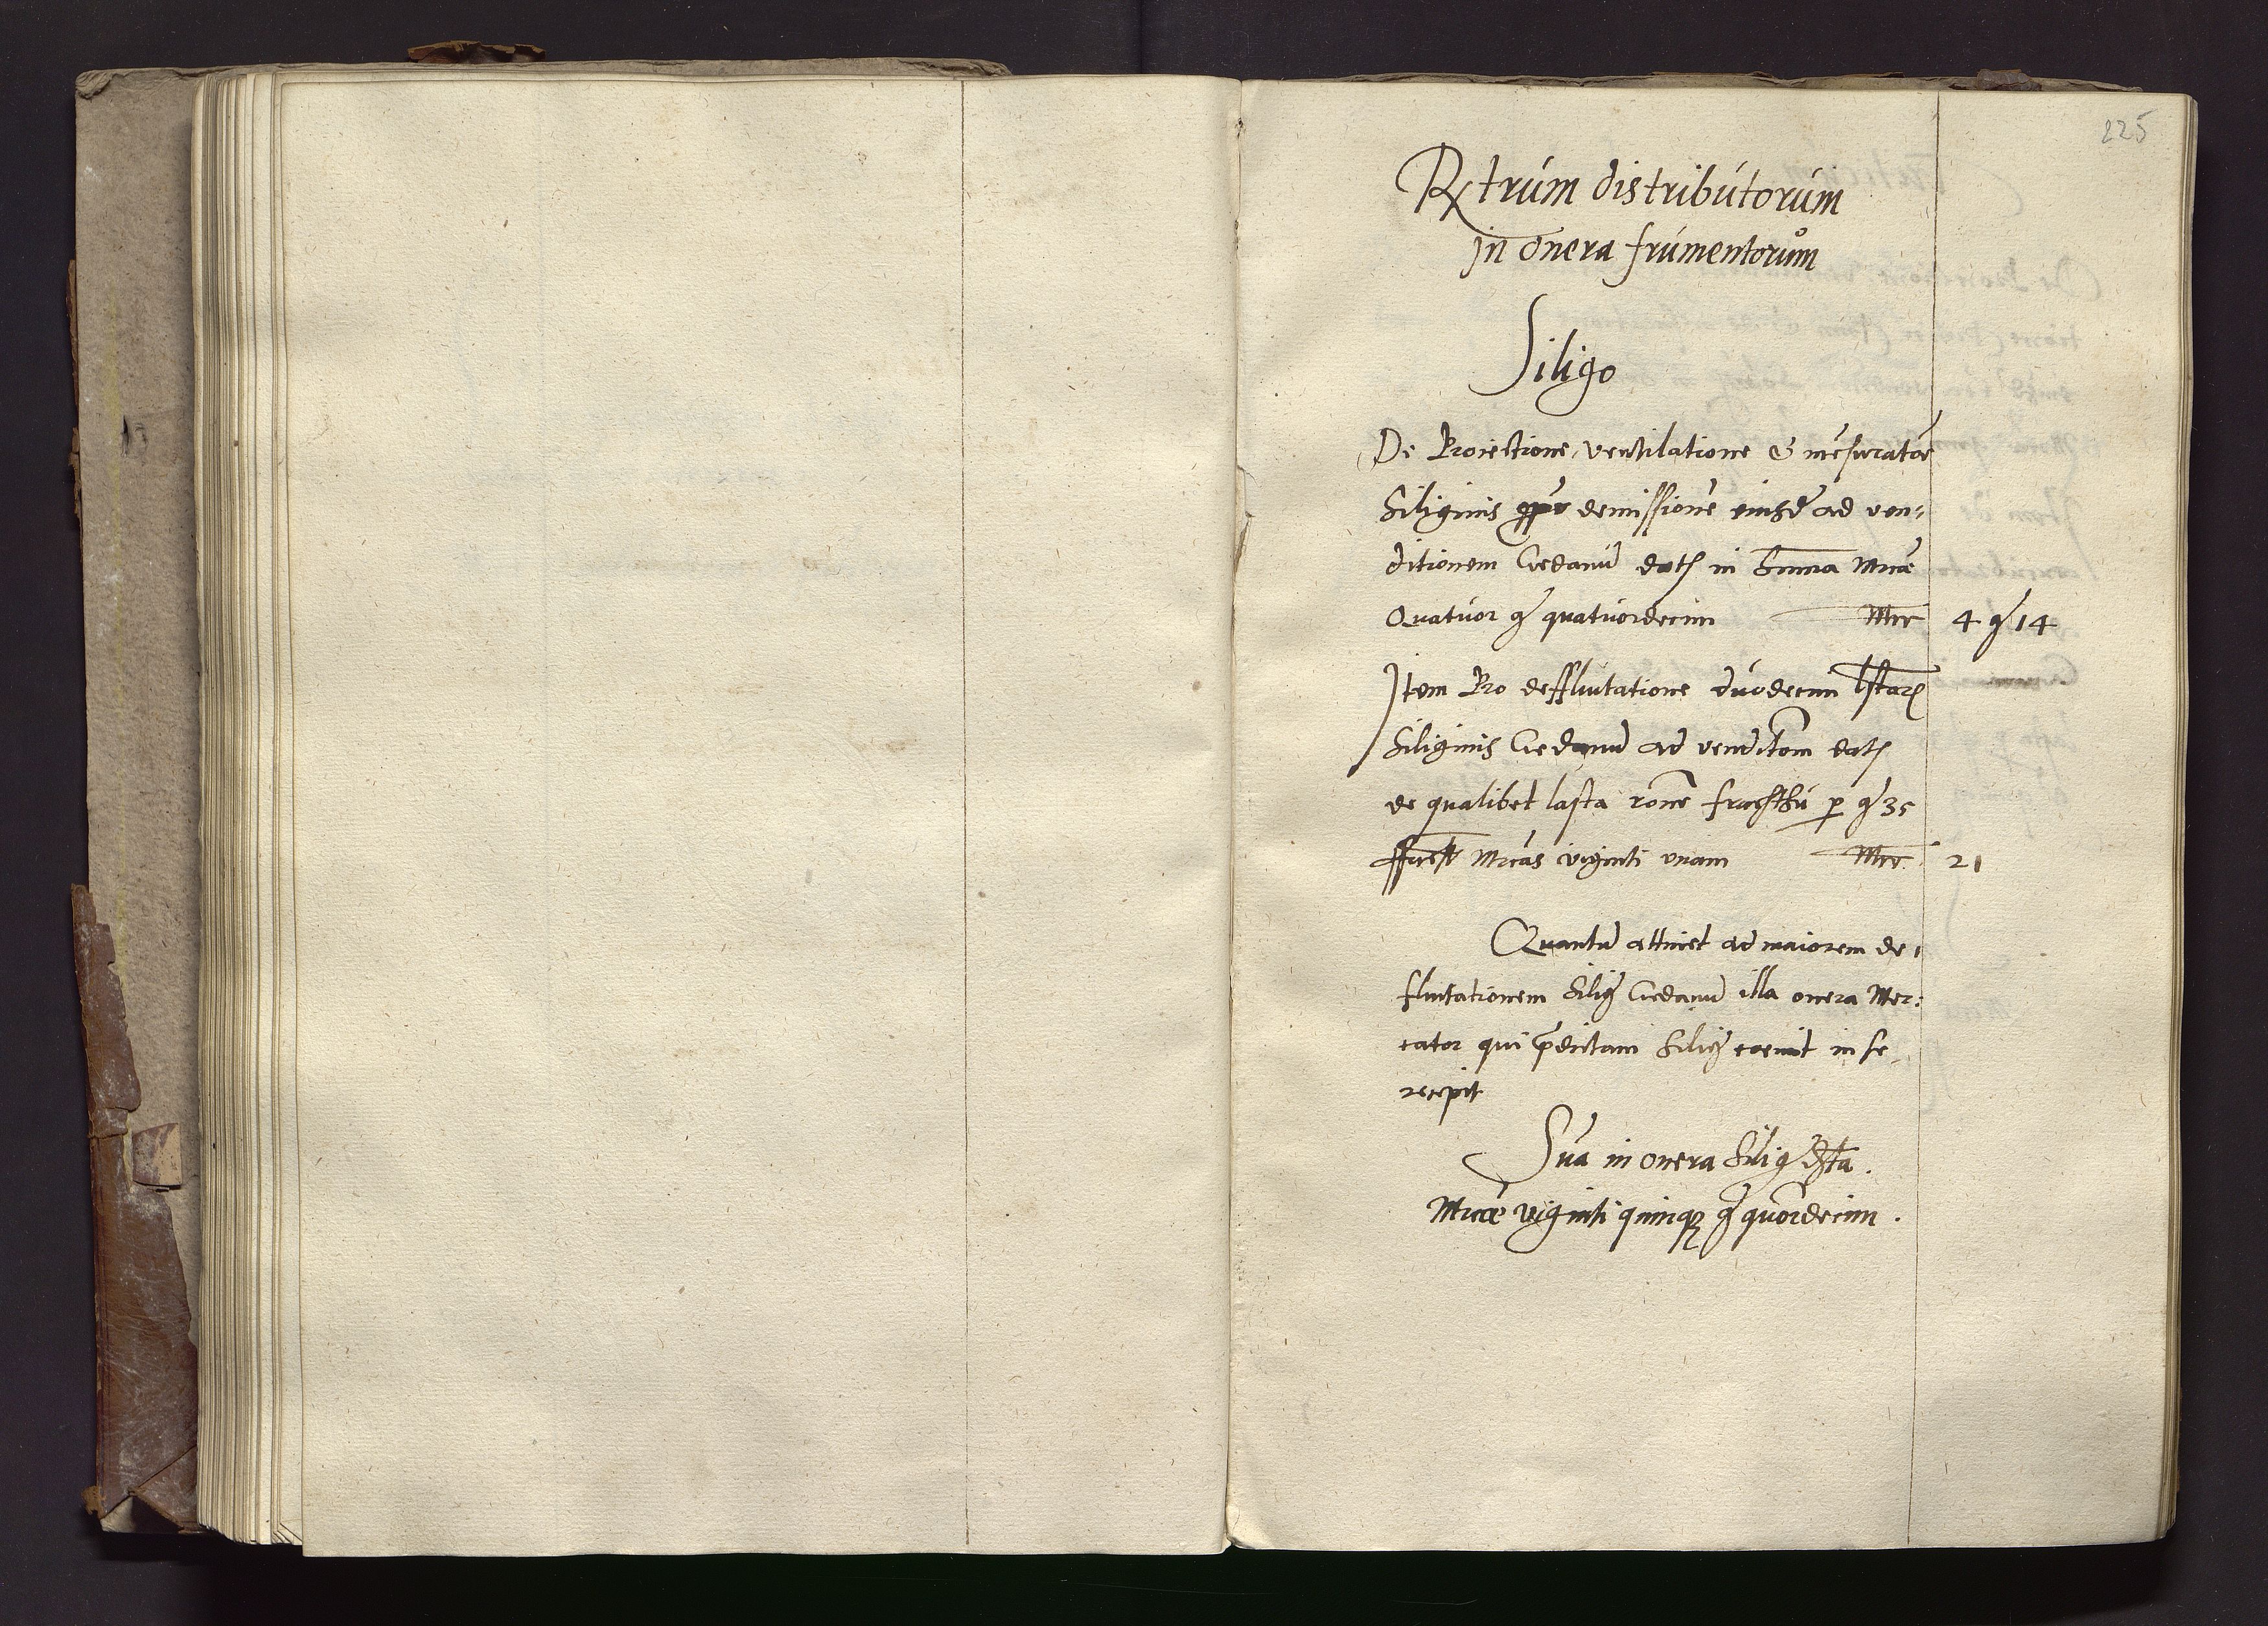 225
Rtrum distributorum
in onera frumentorum
Siligo
De Proiectione, ventilatione & mēsuratōe
Siliginis demissionē eiusdē ad ven-
ditionem Gedanū dat in Sūma Mrcae
Quatuor g quatuordecim Mrc 4 g 14
Item Pro defflutatione duodecim lstar
Siliginis Gedanū ad venditōem dat
de qualibet lasta rōne fructhū p g 35
Mrcas viginti unam Mrc 21
Quantū attinet ad maiorem de-
fluitationem Silig Gedanū illa onera Mer-
cator qui p̄dictam Silig coemit in se
recepit
Sūa in onera Silig dsta.
Mrcae viginti quinq g quordecim.